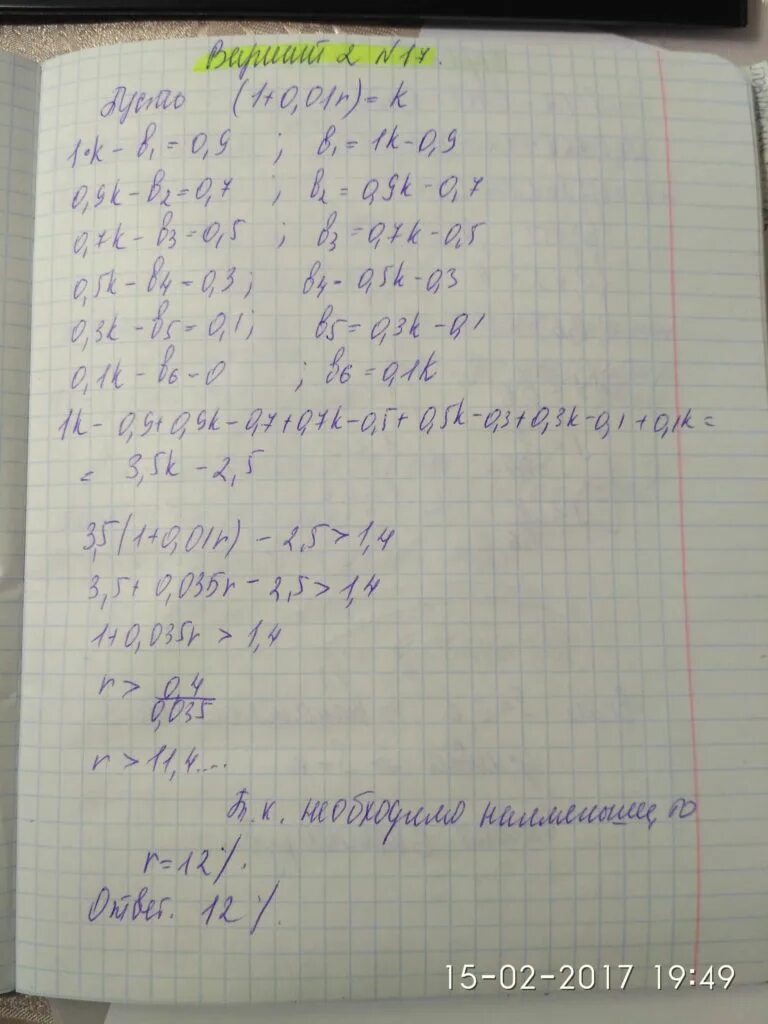 Вариант 2 №17.
Пусть (1+0,01r) = k
1·k - b₁ = 0,9 ; b₁ = 1k - 0,9
0,9k - b₂ = 0,7 ; b₂ = 0,9k - 0,7
0,7k - b₃ = 0,5 ; b₃ = 0,7k - 0,5
0,5k - b₄ = 0,3 ; b₄ = 0,5k - 0,3
0,3k - b₅ = 0,1 ; b₅ = 0,3k - 0,1
0,1k - b₆ = 0 ; b₆ = 0,1k
1k - 0,9 + 0,9k - 0,7 + 0,7k - 0,5 + 0,5k - 0,3 + 0,3k - 0,1 + 0,1k =
= 3,5k - 2,5
3,5(1+0,01r) - 2,5 > 1,4
3,5 + 0,035r - 2,5 > 1,4
1 + 0,035r > 1,4
r > 0,4/0,035
r > 11,4....
Т.к. необходимо наименьшее, то
r = 12%.
Ответ. 12%.
15-02-2017 19:49